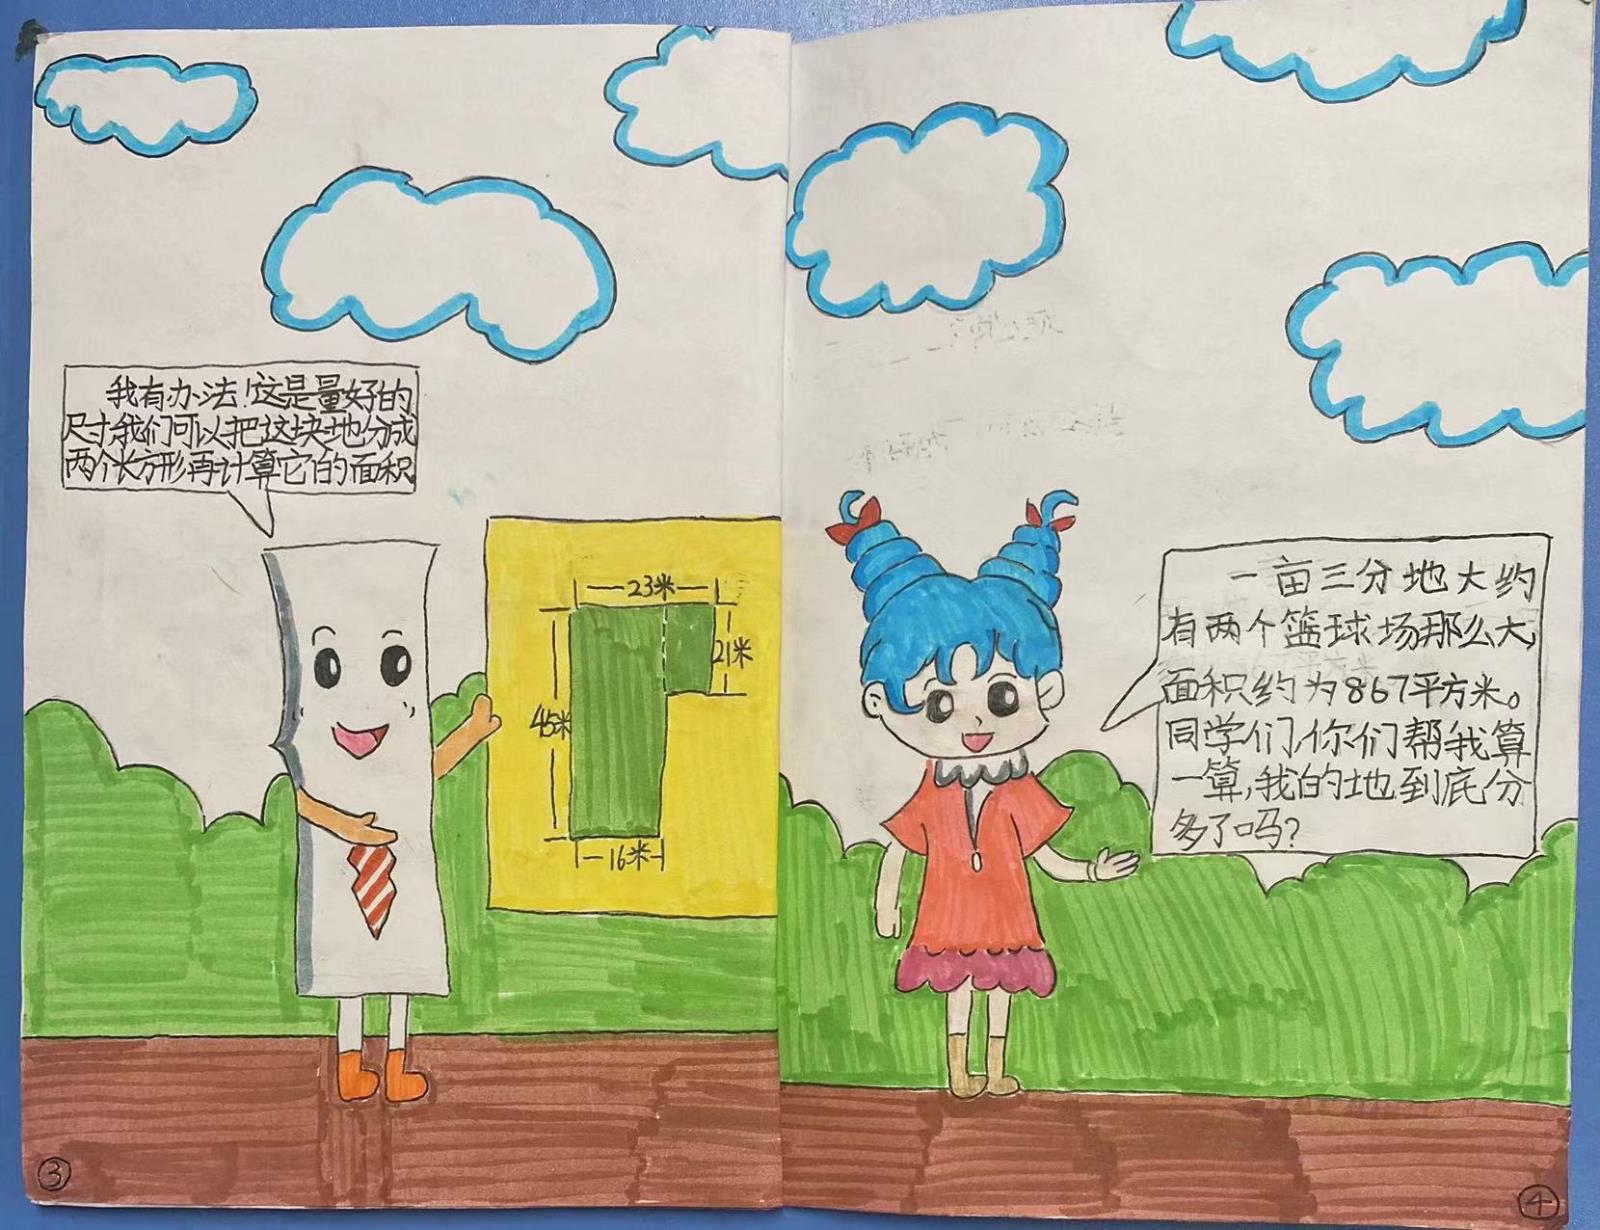 我有办法!这是量好的
尺寸,我们可以把这块地分成
两个长方形再计算它的面积
23米
21米
45米
16米
③
一亩三分地大约
有两个篮球场那么大,
面积约为867平方米。
同学们,你们帮我算
一算,我的地到底分
多了吗?
④